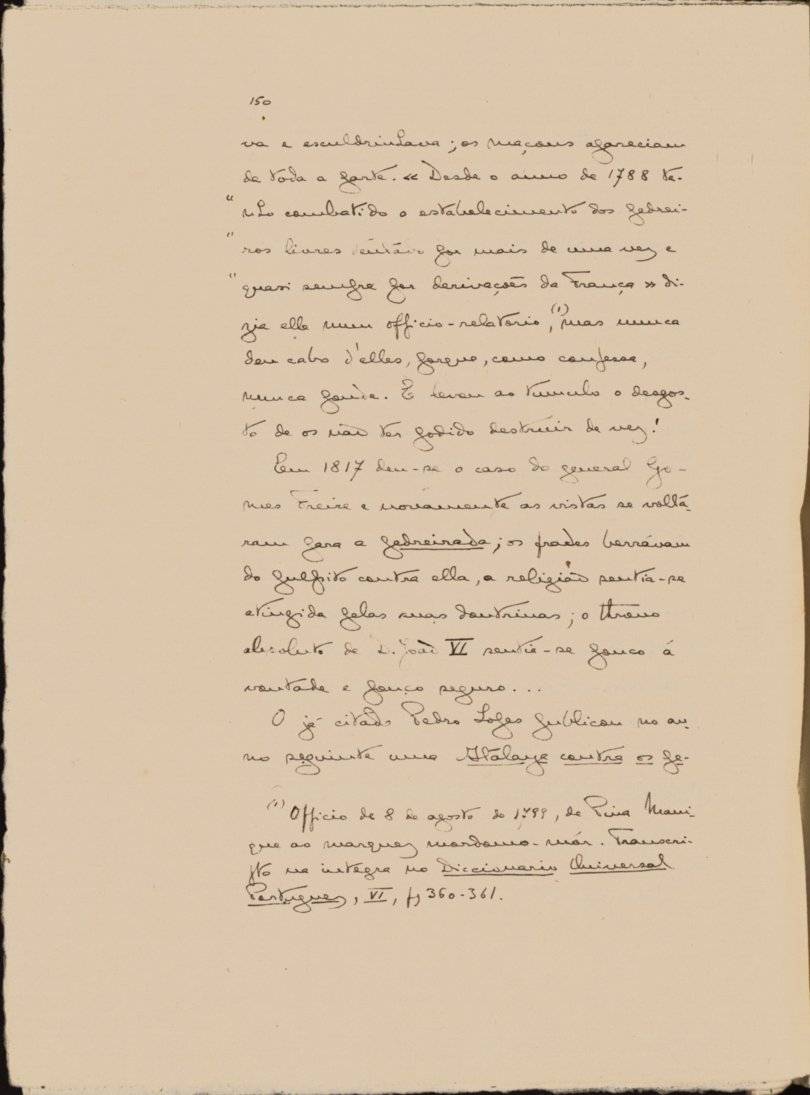 150
va e esculdrinhava; os maçons appareciam
de toda a parte. « Desde o anno de 1788 te-
" nho combatido o estabelecimento dos pedrei-
" ros livres tentado por mais de uma vez e
" quasi sempre por derivações da França » di-
zia elle num officio-relatorio,(1) mas nunca
deu cabo d'elles, porque, como confessa,
nunca poude. E levou ao tumulo o desgos-
to de os não ter podido destruir de vez!
Em 1817 deu-se o caso do general Go-
mes Freire e novamente as vistas se voltá-
ram para a pedreirada; os frades berrávam
do pulpito contra ella, a religião sentia-se
atingida pelas suas doutrinas; o throno
absoluto de D. João VI sentia-se pouco á
vontade e pouco seguro...
O já citado Pedro Lopes publicou no an-
no seguinte uma Atalaya contra os pe-
(1) Officio de 8 de agosto de 1799, de Pina Mani-
que ao marquez mordomo-mór. Transcri-
pto na integra no Diccionario Universal
Portuguez, VI, p, 360-361.